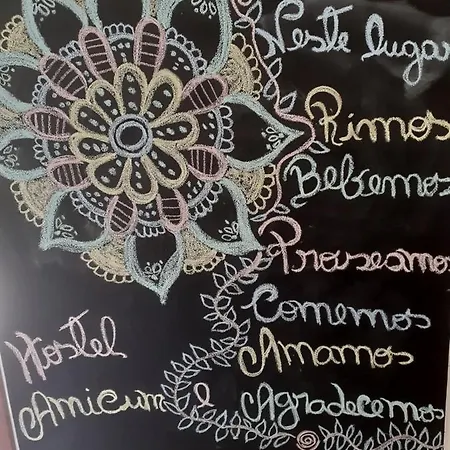 Neste lugar
Rimos
Bebemos
Proseamos
Comemos
Amamos
e Agradecemos
Hostel
Amicum